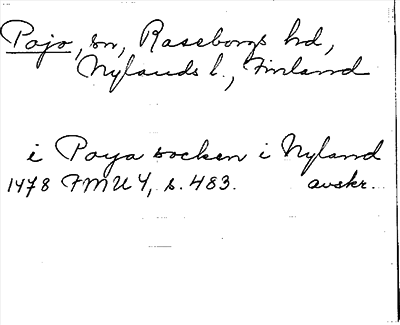 Pojo, sn, Raseborgs hd,
Nylands l., Finland
i Poya socken i Nyland
1478 FMU 4, s. 483. avskr.